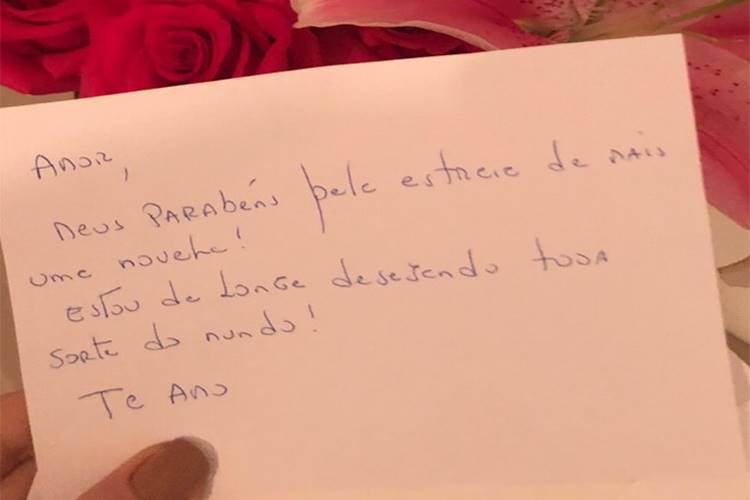 Amor,
Meus PARAbéns pela estreia de mais
uma novela!
Estou de Longe desejando toda
sorte do mundo!
Te Amo